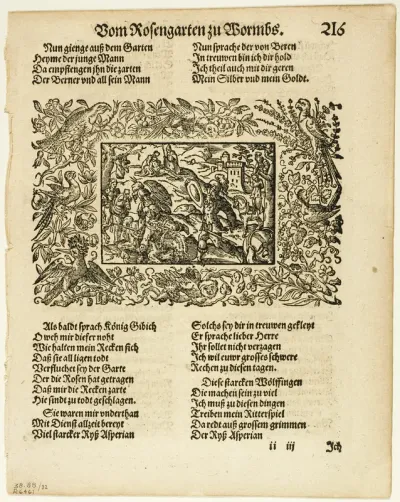 Vom Rosengarten zu Wormbs.
216
Nun gienge auß dem Garten
Heyme der junge Mann
Da empfiengen jhn die zarten
Der Berner vnd all sein Mann
Nun sprache der von Beren
In treuwen bin ich dir hold
Ich theil auch mit dir geren
Mein Silber vnd mein Goldt.
Als baldt sprach König Gibich
O weh mir dieser noht
Wie halten mein Recken sich
Daß sie all ligen todt
Verfluchet sey der Garte
Der die Rosen hat getragen
Daß mir die Recken zarte
Hie sindt zu todt geschlagen.
Sie waren mir vnderthan
Mit Dienst allzeit bereyt
Viel starcker Ryß Asperian
Solchs sey dir in treuwen gekleyt
Er sprache lieber Herre
Ihr sollet nicht verzagen
Ich wil euwr grosses schwere
Rechen zu diesen tagen.
Diese starcken Wölffingen
Die machen sein zu viel
Ich muß zu diesen dingen
Treiben mein Ritterspiel
Da redt auß grossem grimmen
Der Ryß Asperian
ii iij
Ich